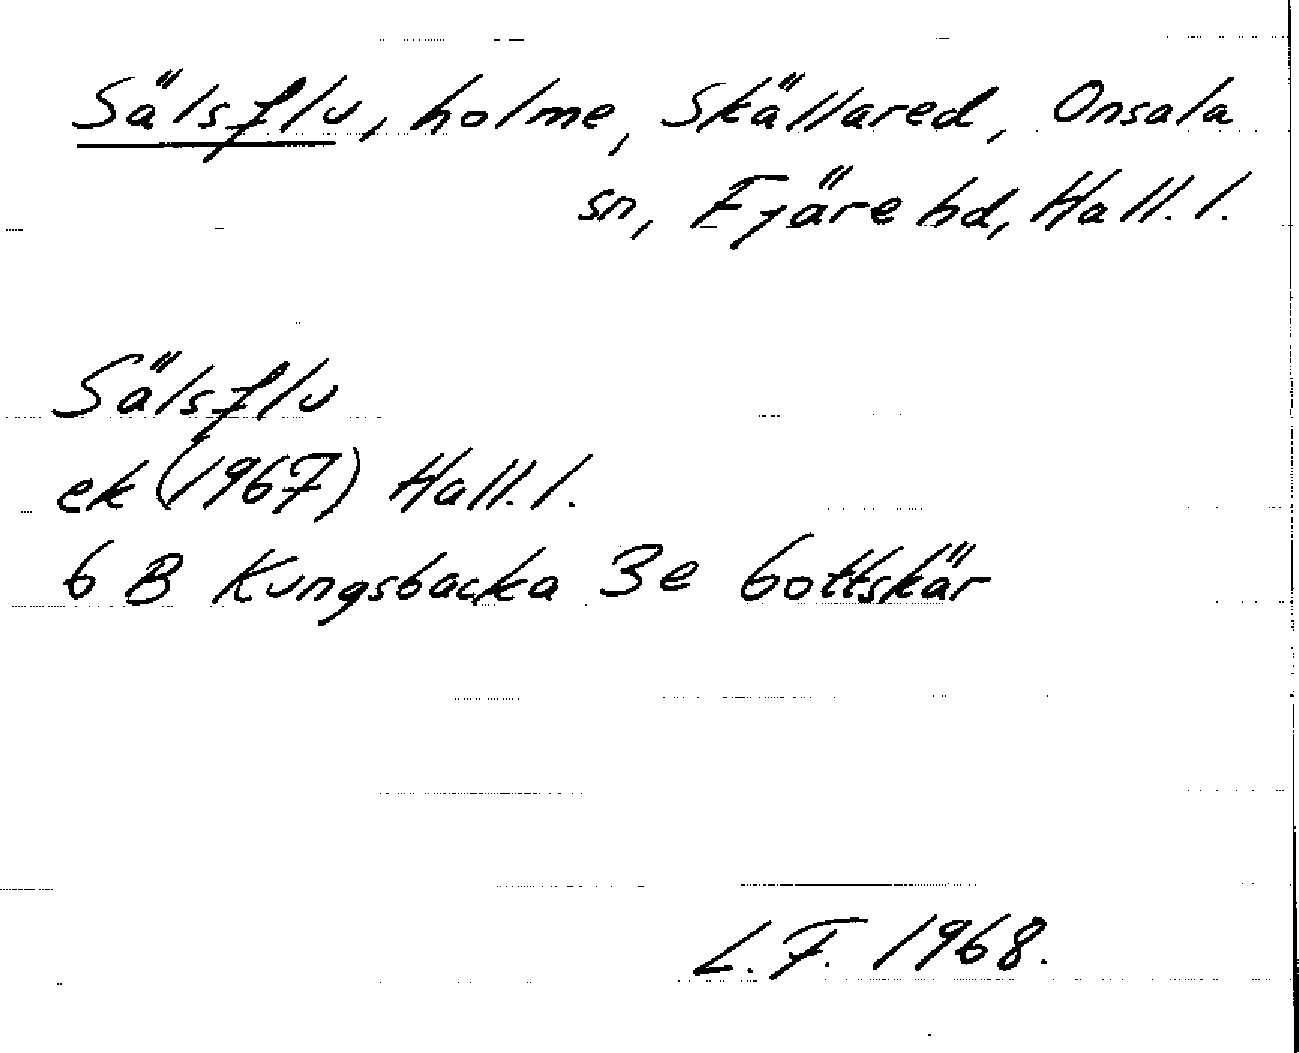 Sälsflu, holme, Skällared, Onsala
sn, Fjäre hd, Hall. l.
Sälsflu
ek (1967) Hall. l.
6 B Kungsbacka 3e Gottskär
L. F. 1968.